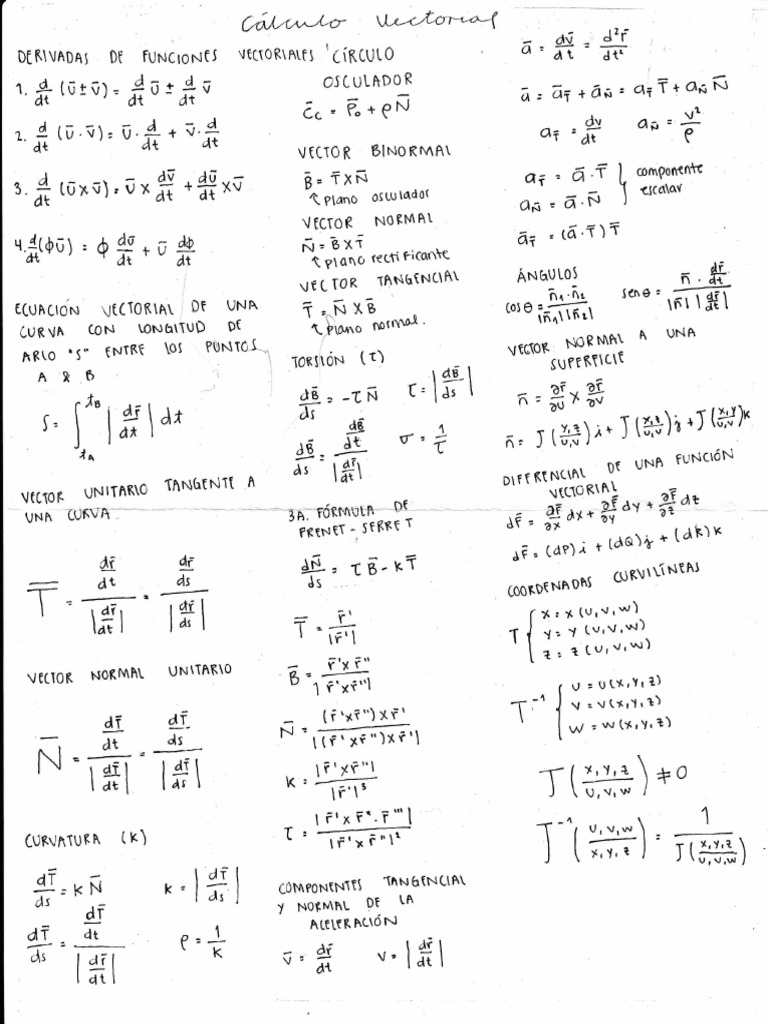 Cálculo Vectorial
DERIVADAS DE FUNCIONES VECTORIALES
1. d/dt (ū±v̄) = d/dt ū ± d/dt v̄
2. d/dt (ū·v̄) = ū·d/dt + v̄·d/dt
3. d/dt (ūxv̄) = ū x dv̄/dt + dū/dt x v̄
4. d/dt (ϕū) = ϕ dū/dt + ū dϕ/dt
ECUACIÓN VECTORIAL DE UNA
CURVA CON LONGITUD DE
ARCO "S" ENTRE LOS PUNTOS
A & B
S = ∫_{t_A}^{t_B} |dr̄/dt| dt
VECTOR UNITARIO TANGENTE A
UNA CURVA
T̄ = (dr̄/dt)/|dr̄/dt| = (dr̄/ds)/|dr̄/ds|
VECTOR NORMAL UNITARIO
N̄ = (dT̄/dt)/|dT̄/dt| = (dT̄/ds)/|dT̄/ds|
CURVATURA (K)
dT̄/ds = k N̄    k = |dT̄/ds|
dT̄/ds = (dT̄/dt)/|dr̄/dt|    ρ = 1/k
CÍRCULO
OSCULADOR
C̄c = P̄o + ρN̄
VECTOR BINORMAL
B̄ = T̄ x N̄
↑ plano osculador
VECTOR NORMAL
N̄ = B̄ x T̄
↑ plano rectificante
VECTOR TANGENCIAL
T̄ = N̄ x B̄
↑ plano normal.
TORSIÓN (τ)
dB̄/ds = -τN̄    τ = |dB̄/ds|
dB̄/ds = (dB̄/dt)/|dr̄/dt|    σ = 1/τ
3A. FÓRMULA DE
FRENET-SERRET
dN̄/ds = τB̄ - kT̄
T̄ = r̄'/|r̄'|
B̄ = r̄'xr̄''/|r̄'xr̄''|
N̄ = (r̄'xr̄'')xr̄'/|(r̄'xr̄'')xr̄'|
k = |r̄'xr̄''|/|r̄'|³
τ = |r̄'xr̄''·r̄'''|/|r̄'xr̄''|²
COMPONENTES TANGENCIAL
Y NORMAL DE LA
ACELERACIÓN
v̄ = dr̄/dt    v = |dr̄/dt|
ā = dv̄/dt = d²r̄/dt²
ā = ā_T̄ + ā_N̄ = a_T̄ T̄ + a_N̄ N̄
a_T̄ = dv/dt    a_N̄ = v²/ρ
a_T̄ = ā·T̄ } componente
a_N̄ = ā·N̄ } escalar
ā_T̄ = (ā·T̄)T̄
ÁNGULOS
cosθ = n̄₁·n̄₂/|n̄₁||n̄₂|    senθ = (n̄·dr̄/dt)/(|n̄||dr̄/dt|)
VECTOR NORMAL A UNA
SUPERFICIE
n̄ = ∂r̄/∂u x ∂r̄/∂v
n̄ = J(y,z/u,v)i + J(x,z/u,v)j + J(x,y/u,v)k
DIFERENCIAL DE UNA FUNCIÓN
VECTORIAL
dF̄ = ∂F̄/∂x dx + ∂F̄/∂y dy + ∂F̄/∂z dz
dF̄ = (dP)i + (dQ)j + (dR)k
COORDENADAS CURVILÍNEAS
T { x = x(u,v,w)
y = y(u,v,w)
z = z(u,v,w)
T⁻¹ { u = u(x,y,z)
v = v(x,y,z)
w = w(x,y,z)
J(x,y,z/u,v,w) ≠ 0
J⁻¹(u,v,w/x,y,z) = 1/J(x,y,z/u,v,w)